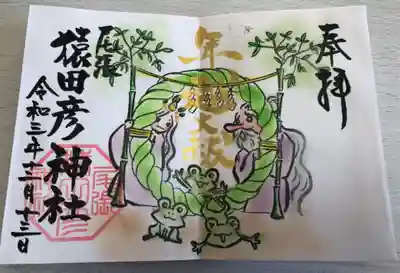 奉拝
年越大祓
尾張
猿田彦神社
令和三年十二月十三日